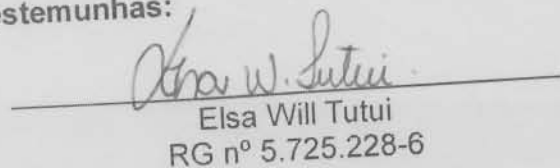 estemunhas:
Elsa W. Tutui
Elsa Will Tutui
RG nº 5.725.228-6